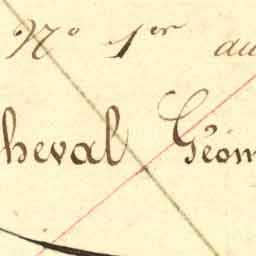 N° 1er au
heval Géom